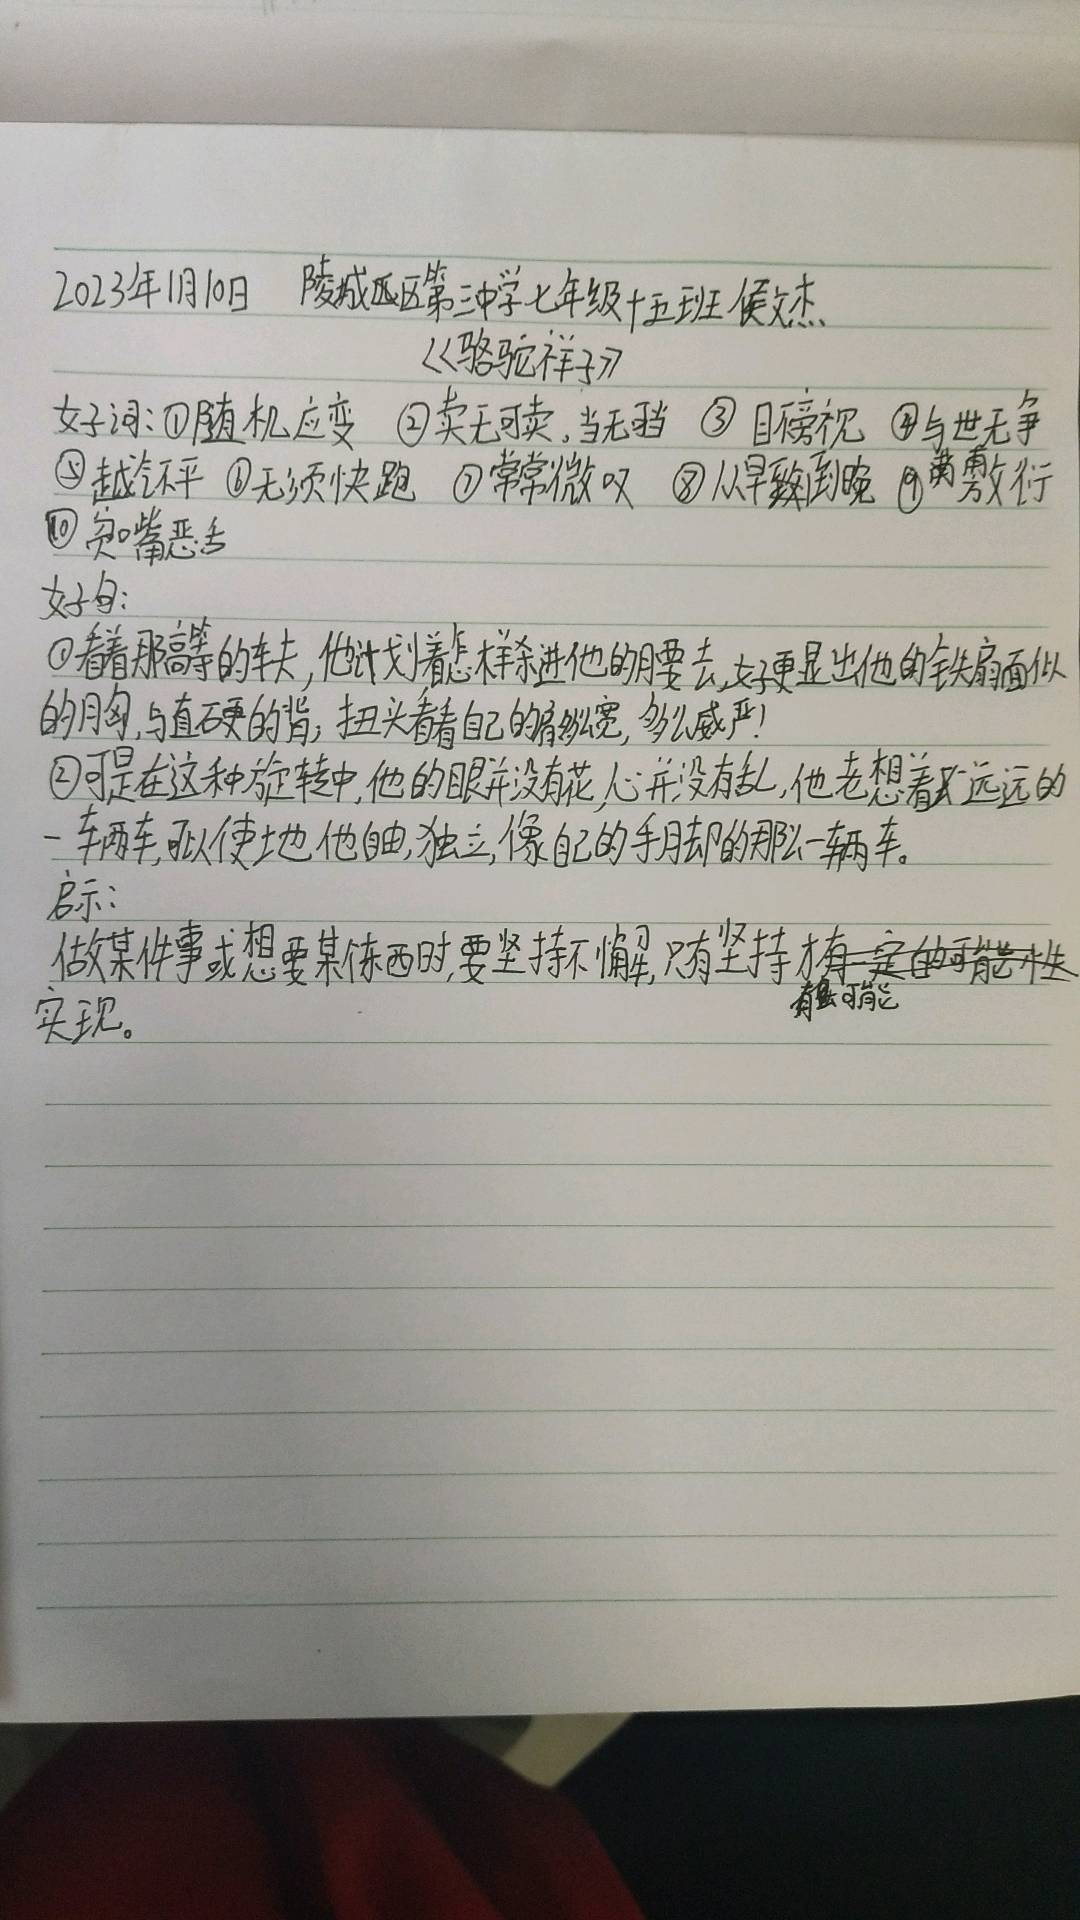 2023年1月10日 陵城区第三中学七年级十五班 侯文杰
《骆驼祥子》
好词:①随机应变 ②卖无可卖,当无可当 ③目傍视 ④与世无争
⑤越气不平 ⑥无须快跑 ⑦常常微叹 ⑧从早到晚 ⑨敷衍
⑩贫嘴恶舌
好句:
①看着那高等的车夫,他计划着怎样杀进他的腰去,好更显出他的铁扇面似
的胸,与直硬的背;扭头看看自己的肩,多么宽,多么威严!
②可是在这种旋转中,他的眼并没有花,心并没有乱,他老想着远远的
一辆车,可以使他自由,独立,像自己的手脚的那么一辆车。
启示:
做某件事或想要某件东西时,要坚持不懈,只有坚持才有一定的可能性
有可能
实现。